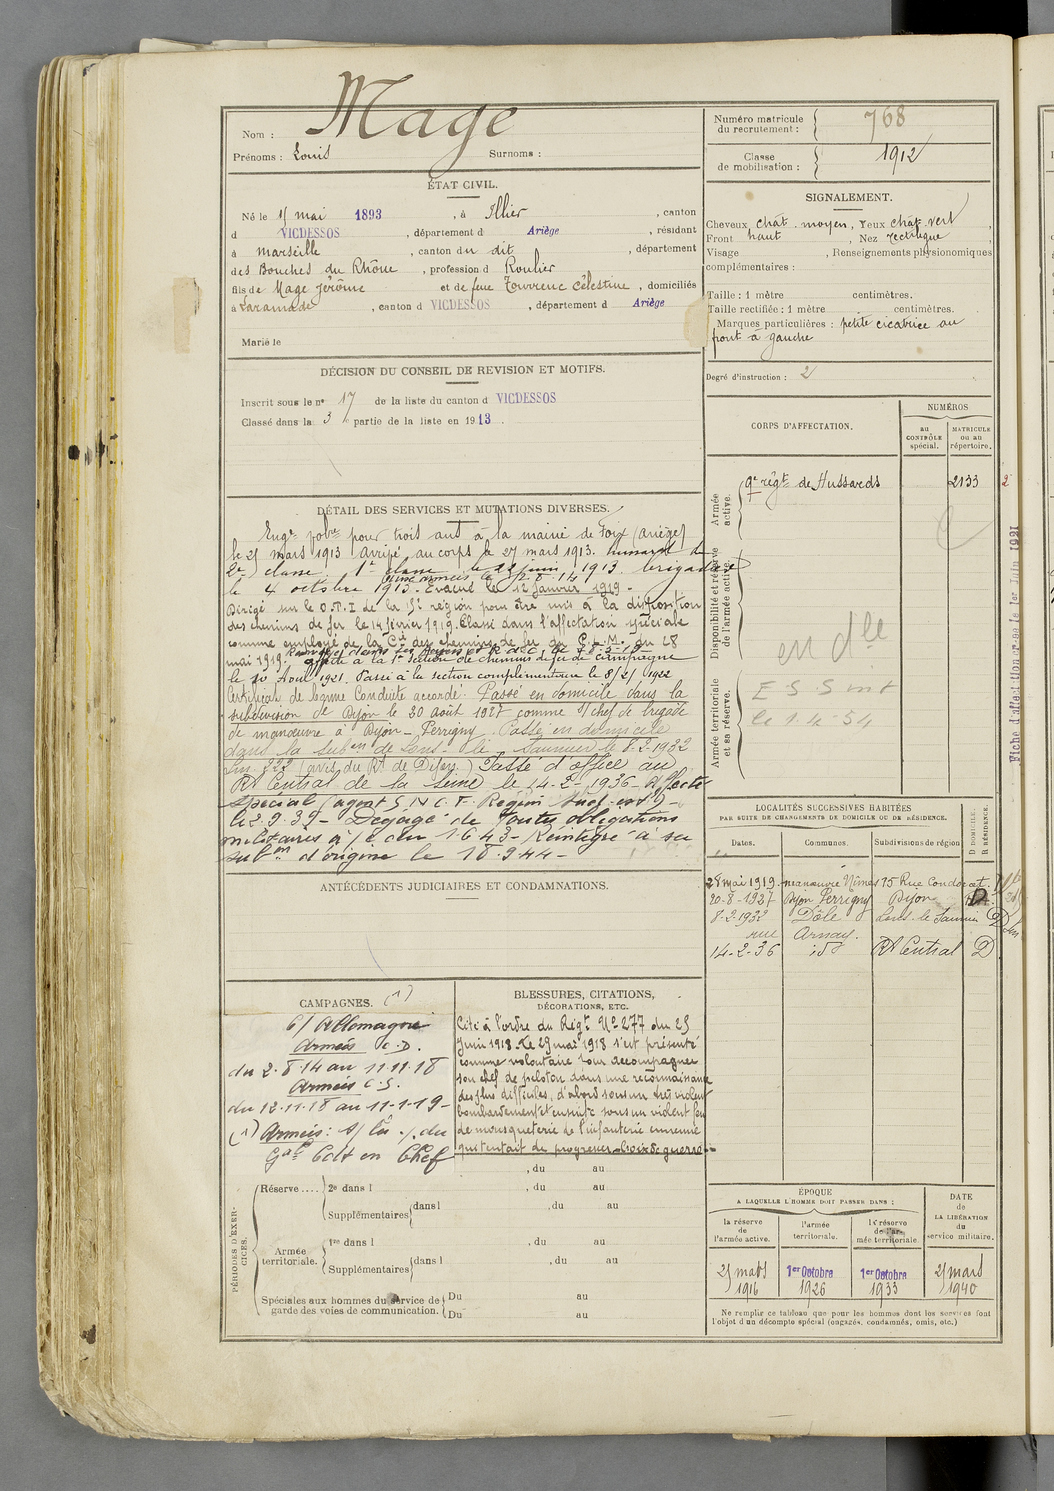 Nom : Mage
Prénoms : Louis Surnoms :
ÉTAT CIVIL.
Né le mai 1893, à Illier, canton
d VICDESSOS, département d Ariège, résidant
à marseille, canton du dit, département
des Bouches du Rhône, profession d Roulier
fils de Mage Jérôme et de feue Célestine, domiciliés
à Laramade, canton d VICDESSOS, département d Ariège
Marié le
DÉCISION DU CONSEIL DE REVISION ET MOTIFS.
Inscrit sous le no 17 de la liste du canton d VICDESSOS
Classé dans la 3 partie de la liste en 1913.
DÉTAIL DES SERVICES ET MUTATIONS DIVERSES.
Engé volre pour trois ans à la mairie de Foix (Ariège)
le 25 mars 1913 arrivé au corps le 27 mars 1913. hussard de
2e classe. 1e classe le juin 1913. brigadier
le 4 octobre 1913. Evacué le 12 janvier 1919 -
aux armées le 2.8.14
Dirigé sur le O.P.I de la région pour être mis à la disposition
des chemins de fer le 14 février 1919. Classé dans l'affectation spéciale
comme employé de la Cie des chemins de fer du P.L.M. du 28
mai 1919.
affecté à la 1e section de chemins de fer de campagne
le 10 Aout 1921. Passé à la section complémentaire le 8/2/1922
Certificat de bonne Conduite accordé. Passé en domicile dans la
subdivision de Dijon le 30 août 1927 comme s/chef de brigade
de manœuvre à Dijon - Perrigny. Passé en domicile
dans la subon de Lons-le-Saunier le 8-2-1932
(avis du Rt de Dijon.) Passé d'office au
Rt Central de la Seine le 14-2-1936 - Affecté
spécial (agent S N C F. Région Sud-est)
le 2.9.39 - Dégagé de toutes obligations
militaires à/c du 1.6.43 - Réintégré à sa
subon d'origine le 18.9.44 -
ANTÉCÉDENTS JUDICIAIRES ET CONDAMNATIONS.
CAMPAGNES. (1)
C/ Allemagne
Armées C.D.
du 2.8.14 au 11.11.18
Armées C.S.
du 12.11.18 au 11-1-19-
(1) Armées: du
Gal Cdt en Chef
BLESSURES, CITATIONS,
DÉCORATIONS, ETC.
Cité à l'ordre du Régt No 277 du 25
Juin 1918. Le 29 mai 1918 s'est présenté
comme volontaire pour accompagner
son chef de peloton dans une reconnaissance
des plus difficiles, d'abord sous un très violent
bombardement et ensuite sous un violent feu
de mousqueterie de l'infanterie ennemie
qui tentait de progresser - Croix de guerre -
PÉRIODES D'EXERCICES.
, du au
Réserve.... 2e dans l , du au
Supplémentaires dans l , du au
Armée territoriale. 1re dans l , du au
Supplémentaires dans l , du au
Spéciales aux hommes du service de Du au
garde des voies de communication. Du au
Numéro matricule
du recrutement : 768
Classe
de mobilisation : 1912
SIGNALEMENT.
Cheveux chât. moyen, Yeux chât. vert,
Front haut, Nez rectiligne,
Visage , Renseignements physionomiques
complémentaires :
Taille : 1 mètre centimètres.
Taille rectifiée : 1 mètre centimètres.
Marques particulières : petite cicatrice au
front à gauche
Degré d'instruction : 2
CORPS D'AFFECTATION.
NUMÉROS
au
CONTRÔLE
spécial.
MATRICULE
ou au
répertoire.
Armée
active.
9e régt de Hussards 2133 2
Disponibilité et réserve
de l'armée active.
Armée territoriale
et sa réserve.
en dle
E S S
le 1.4.54
Fiche d'affectation créée le 1er Juin 1921
LOCALITÉS SUCCESSIVES HABITÉES
PAR SUITE DE CHANGEMENTS DE DOMICILE OU DE RÉSIDENCE.
Dates. Communes. Subdivisions de région
D DOMICILE.
R RÉSIDENCE.
28 mai 1919. manœuvre Nîmes 15 Rue Condorcet.
20-8-1927 Dijon Perrigny Dijon D
8-2-1932 Dôle Lons-le-Saunier D
rue Arnay.
14-2-36 id Rt Central D
ÉPOQUE
A LAQUELLE L'HOMME DOIT PASSER DANS :
la réserve
de
l'armée active.
l'armée
territoriale.
la réserve
de l'armée territoriale.
DATE
de
LA LIBÉRATION
du
service militaire.
25 mars
1916
1er Octobre
1926
1er Octobre
1933
25 mars
1940
Ne remplir ce tableau que pour les hommes dont les services font
l'objet d'un décompte spécial (engagés, condamnés, omis, etc.)